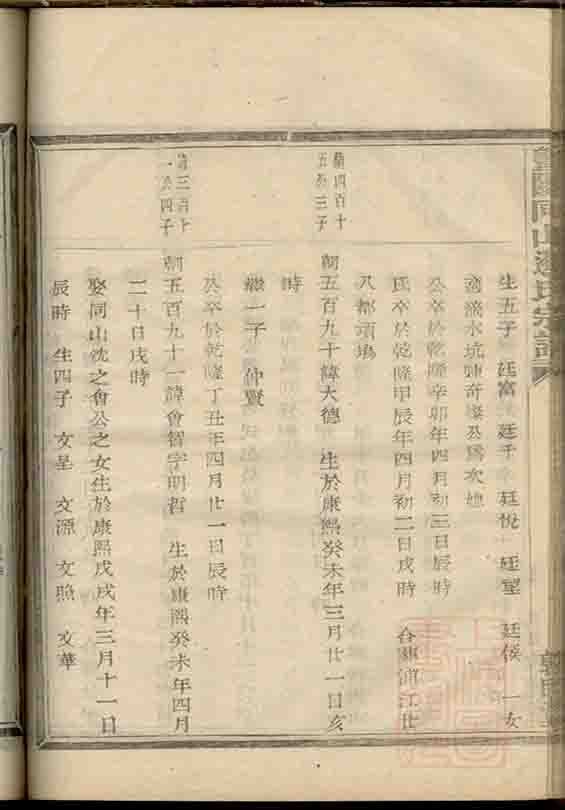 同山邊氏宗譜
生五子 廷富 廷千 廷悅 廷望 廷侯 一女
適滴水坑陳奇燦公爲次媳
公卒於乾隆辛卯年四月初三日辰時
氏卒於乾隆甲辰年四月初二日戌時 合葬浦江廿
八都項塢
朝四百十
五公三子
朝五百九十諱大德 生於康熙癸未年三月廿一日亥
時
繼一子 仲賢
公卒於乾隆丁丑年四月廿一日辰時
三百十
一公四子
朝五百九十一諱會智字明哲 生於康熙癸未年四月
二十日戌時
娶同山沈之會公之女生於康熙戊戌年三月十一日
辰時 生四子 文呈 文源 文照 文華